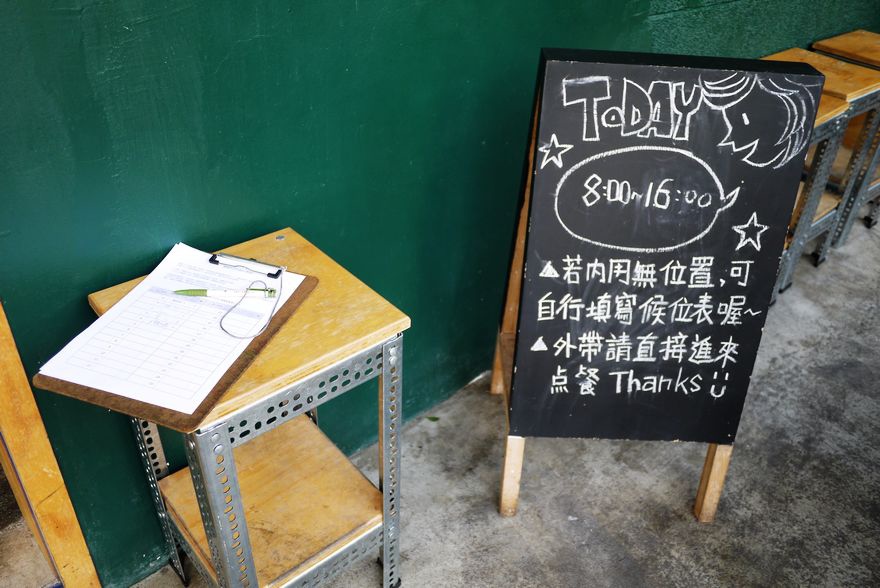 ToDAY
8:00~16:00
▲若內用無位置,可
自行填寫候位表喔~
▲外帶請直接進來
点餐 Thanks